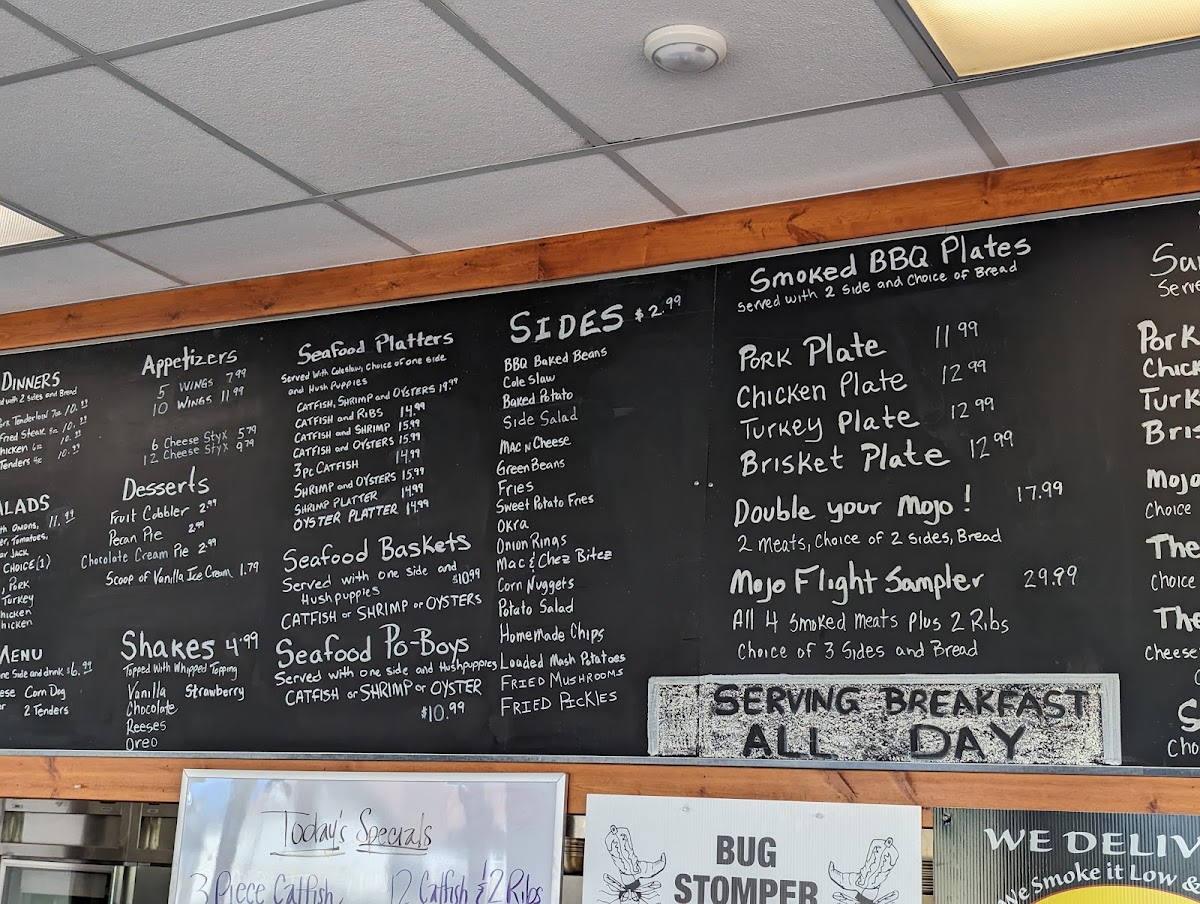 DINNERS
d with 2 sides and Bread
Pork Tenderloin 7oz 10.99
Fried Steak 10.99
hicken 6oz 10.99
Tenders 4pc 10.99
ALADS
11.99
Tomatoes,
JACK,
CHOICE(1)
, PORK
Turkey
hicken
hicken
MENU
ne Side and drink $6.99
ese Corn Dog
er 2 Tenders
Appetizers
5 WINGS 7.99
10 WINGS 11.99
6 Cheese Styx 5.79
12 Cheese Styx 9.79
Desserts
Fruit Cobbler 2.99
Pecan Pie 2.99
Chocolate Cream Pie 2.99
Scoop of Vanilla Ice Cream 1.79
Shakes 4.99
Topped With Whipped Topping
Vanilla Strawberry
Chocolate
Reeses
Oreo
Seafood Platters
Served With Coleslaw, Choice of one side
and Hush Puppies
CATFISH, SHRIMP and OYSTERS 19.99
CATFISH and RIBS 14.99
CATFISH and SHRIMP 15.99
CATFISH and OYSTERS 15.99
3pc CATFISH 14.99
SHRIMP and OYSTERS 15.99
SHRIMP PLATTER 14.99
OYSTER PLATTER 14.99
Seafood Baskets
Served with one side and
Hushpuppies $10.99
CATFISH or SHRIMP or OYSTERS
Seafood Po-Boys
Served with one side and Hushpuppies
CATFISH or SHRIMP or OYSTER
$10.99
SIDES $2.99
BBQ Baked Beans
Cole Slaw
Baked Potato
Side Salad
Mac n Cheese
Green Beans
Fries
Sweet Potato Fries
Okra
Onion Rings
Mac & Chez Bitez
Corn Nuggets
Potato Salad
HomeMade Chips
Loaded Mash Potatoes
FRIED MUSHROOMS
FRIED PICKLES
Smoked BBQ Plates
Served with 2 Side and Choice of Bread
Pork Plate 11.99
Chicken Plate 12.99
Turkey Plate 12.99
Brisket Plate 12.99
Double your Mojo! 17.99
2 Meats, Choice of 2 Sides, Bread
Mojo Flight Sampler 29.99
All 4 Smoked Meats Plus 2 Ribs
Choice of 3 Sides and Bread
SERVING BREAKFAST
ALL DAY
San
Serve
Pork
Chick
Turk
Bris
Mojo
Choice
The
Choice
The
Cheese
S
Cho
Today's Specials
3 Piece Catfish
12 Catfish & 2 Ribs
BUG
STOMPER
WE DELIV
We Smoke it Low &